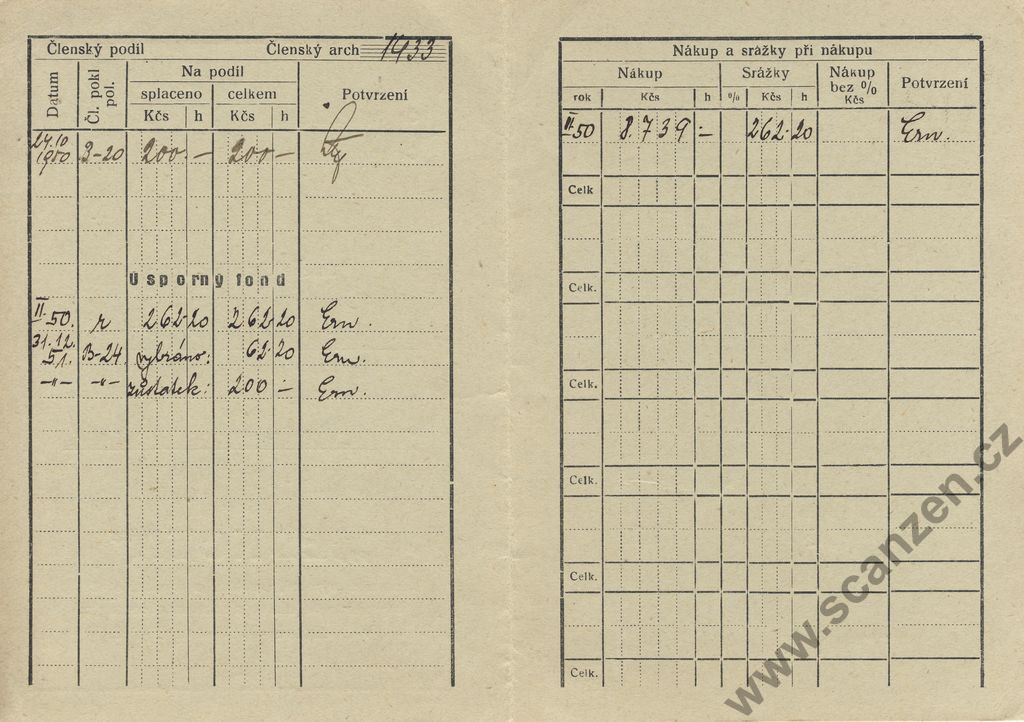 Členský podíl Členský arch 1933
Datum
Čl. pokl pol.
Na podíl
splaceno celkem
Kčs h Kčs h
Potvrzení
24.10 1950 3-20 200.- 200-
Úsporný fond
II. 50. r 262.20 262.20 Ern.
31.12. 51. B-24 vybráno: 62.20 Ern.
-"- -"- zůstatek: 200 - Ern.
Nákup a srážky při nákupu
Nákup Srážky Nákup bez % Kčs Potvrzení
rok Kčs h % Kčs h
II. 50 8.739 :- 262.20 Ern.
Celk
Celk.
Celk.
Celk.
Celk.
Celk.
www.scanzen.cz